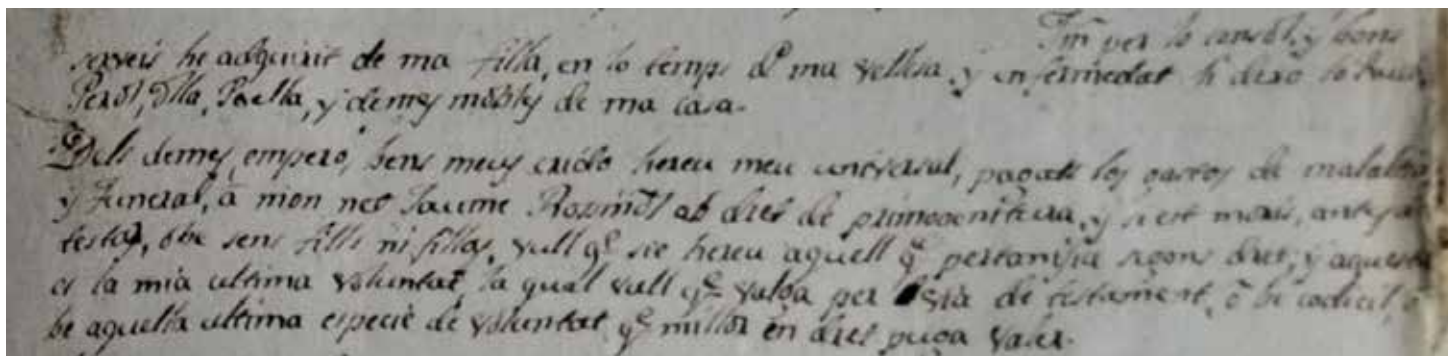 Itm per lo consol, y bons
serveis he adquirit de ma filla, en lo temps de ma vellesa, y enfermedat li dexo lo
Perol, Olla, Paella, y demes mobles de ma casa.
Dels demes empero, bens meus crido hereu meu universal, pagats los gastos de malaltia
y Funeral, á mon net Jaume ab dret de primogenitura, y si est moris, antes de
testar, ò be sens fills ni fillas, vull qe. sie hereu aquell qe. pertanyia segons dret; y aquesta
es la mia ultima voluntat, la qual vull qe. valga per via de testament, ò be codicil, ò
be aquella ultima especie de voluntat qe. millor en dret puga valer.